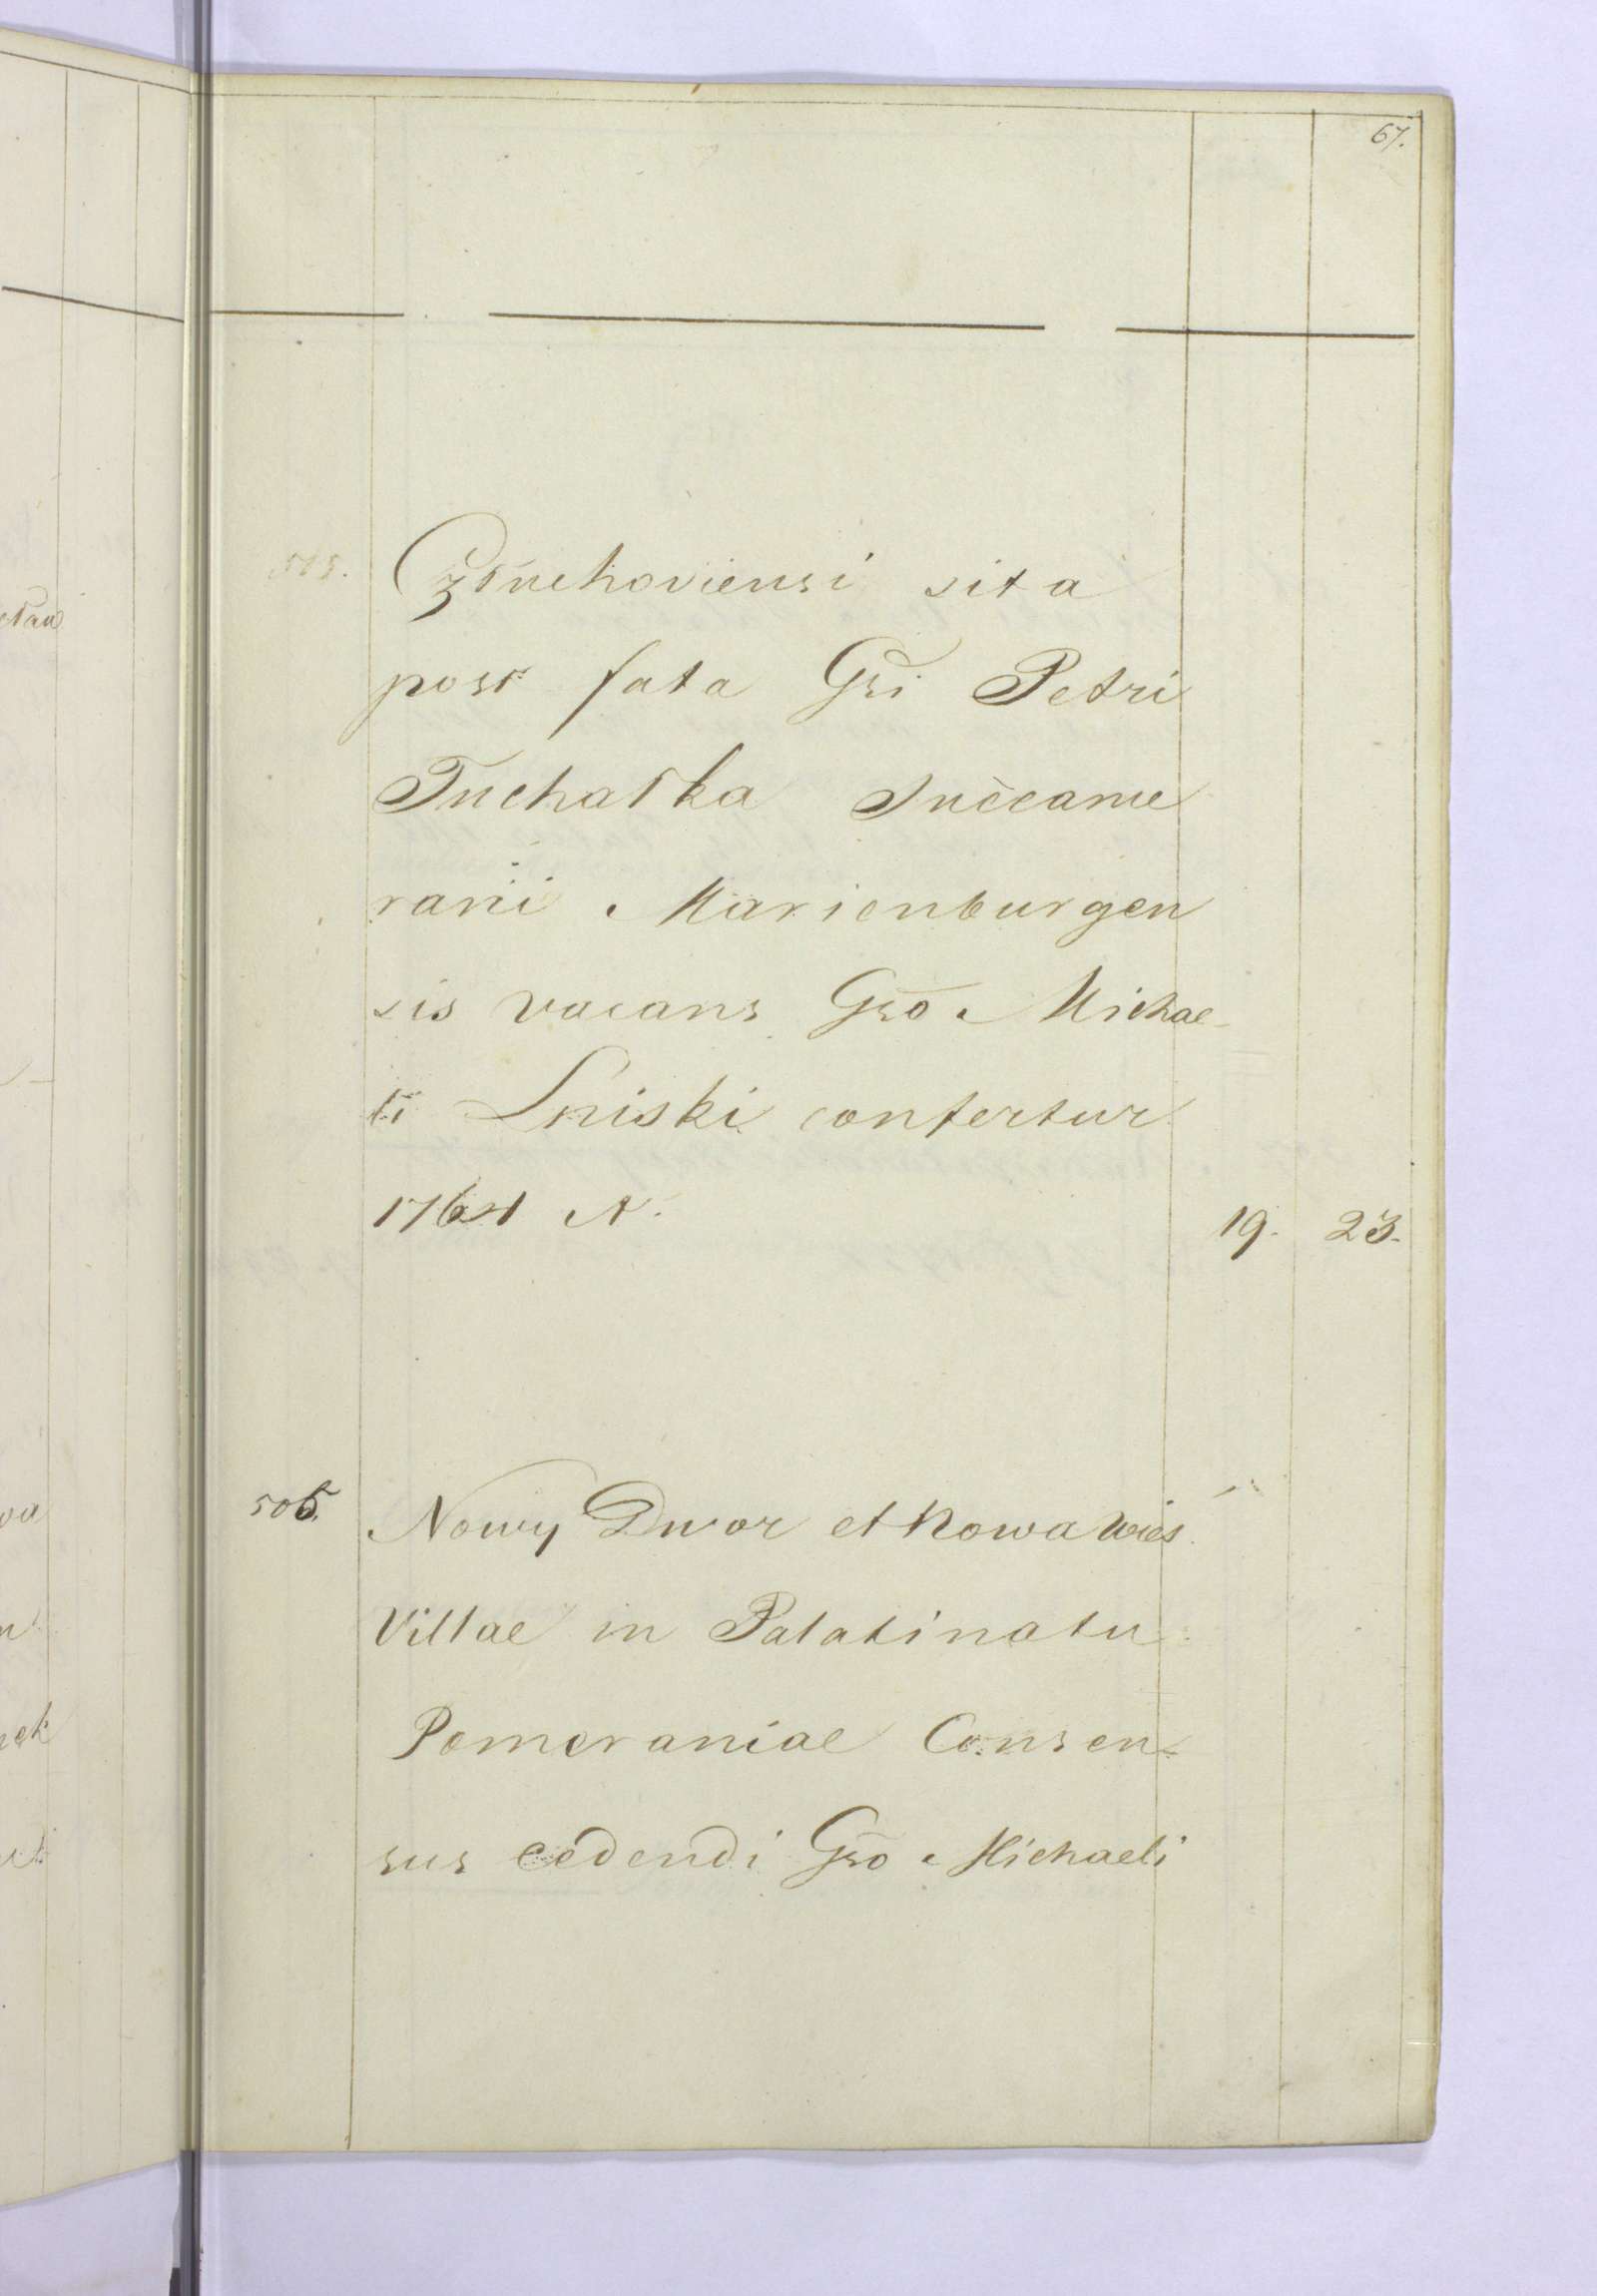 67.
Człuchoviensi sita
post fata Gsi Petri
Tuchałka Succame
rarii Marienburgen
sis vacans Gso Michae-
li Lniski confertur
1764 A. 19. 23.
506. Nowy Dwor et Nowa Wies
Villae in Palatinatu
Pomeraniae Consen-
sus cedendi Gso Michaeli